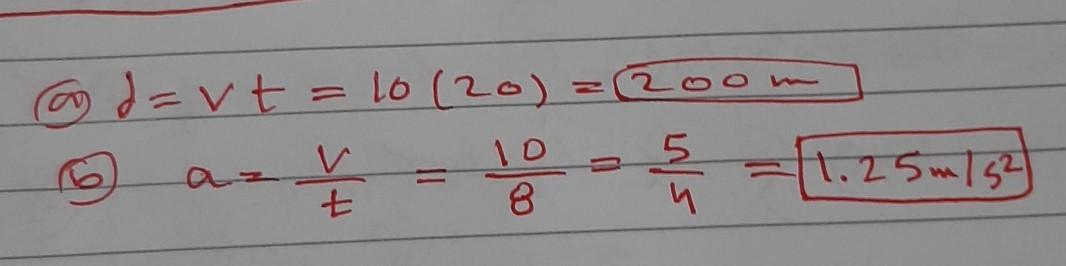 (a) d = vt = 10 (20) = 200 m
(b) a = v/t = 10/8 = 5/4 = 1.25 m/s²